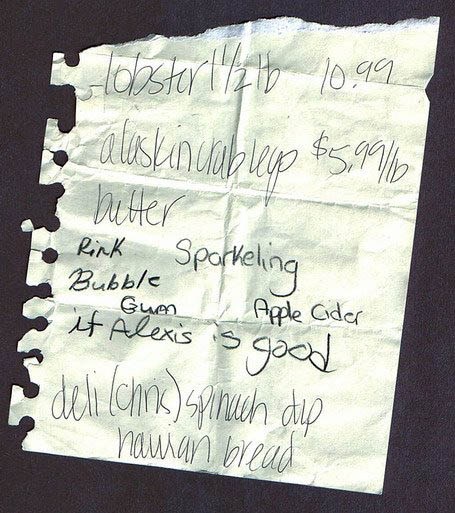 lobster 1 1/2 lb 10.99
alaskin crab legs $5.99/lb
butter
Pink Sparkeling
Bubble
Gum Apple Cider
if Alexis is good
deli (chris) spinach dip
hawian bread